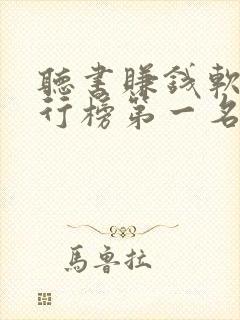 聽書賺錢軟
行榜第一名
馬魯拉